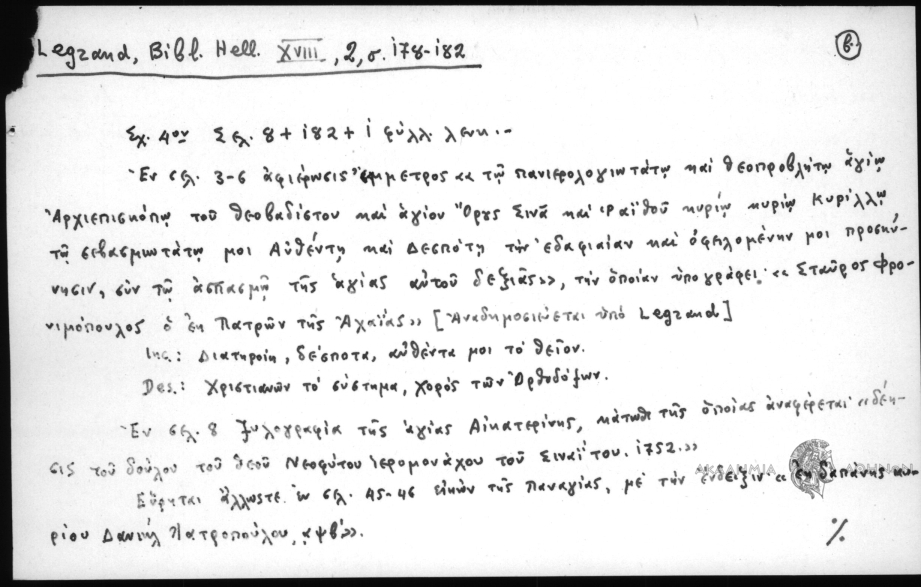 Legrand, Bibl. Hell. XVIII, 2, σ. 178-182
β.
Σχ. 4ον Σελ. 8 + 182 + 1 φύλλ. λευκ.-
Ἐν σελ. 3-6 ἀφιέρωσις ἔμμετρος «τῷ πανιερολογιωτάτῳ καί θεοπροβλήτῳ ἁγίῳ
Ἀρχιεπισκόπῳ τοῦ θεοβαδίστου καί ἁγίου Ὄρους Σινᾶ καί Ῥαϊθοῦ κυρίῳ κυρίῳ Κυρίλλῳ
τῷ σεβασμιωτάτῳ μοι Αὐθέντῃ καί Δεσπότῃ τήν ἐδαφιαίαν καί ὀφειλομένην μοι προσκύ-
νησιν, σύν τῷ ἀσπασμῷ τῆς ἁγίας αὐτοῦ δεξιᾶς», τήν ὁποίαν ὑπογράφει: «Σταῦρος Φρο-
νιμόπουλος ὁ ἐκ Πατρῶν τῆς Ἀχαΐας» [Ἀναδημοσιεύεται ὑπό Legrand]
Inc.: Διατηροίη, δέσποτα, αὐθέντα μοι τό θεῖον.
Des.: Χριστιανῶν τό σύστημα, χορός τῶν Ὀρθοδόξων.
Ἐν σελ. 8 ξυλογραφία τῆς ἁγίας Αἰκατερίνης, κάτωθι τῆς ὁποίας ἀναφέρεται «δέη-
σις τοῦ δούλου τοῦ θεοῦ Νεοφύτου ἱερομονάχου τοῦ Σιναΐτου. 1752.»
Εὕρηται ἄλλωστε ἐν σελ. 45-46 εἰκών τῆς Παναγίας, μέ τήν ἔνδειξιν «ἐκ δαπάνης κυ-
ρίου Δανιήλ Πατροπούλου, αψβ'».
%
ΑΚΑΔΗΜΙΑ ΑΘΗΝΩΝ